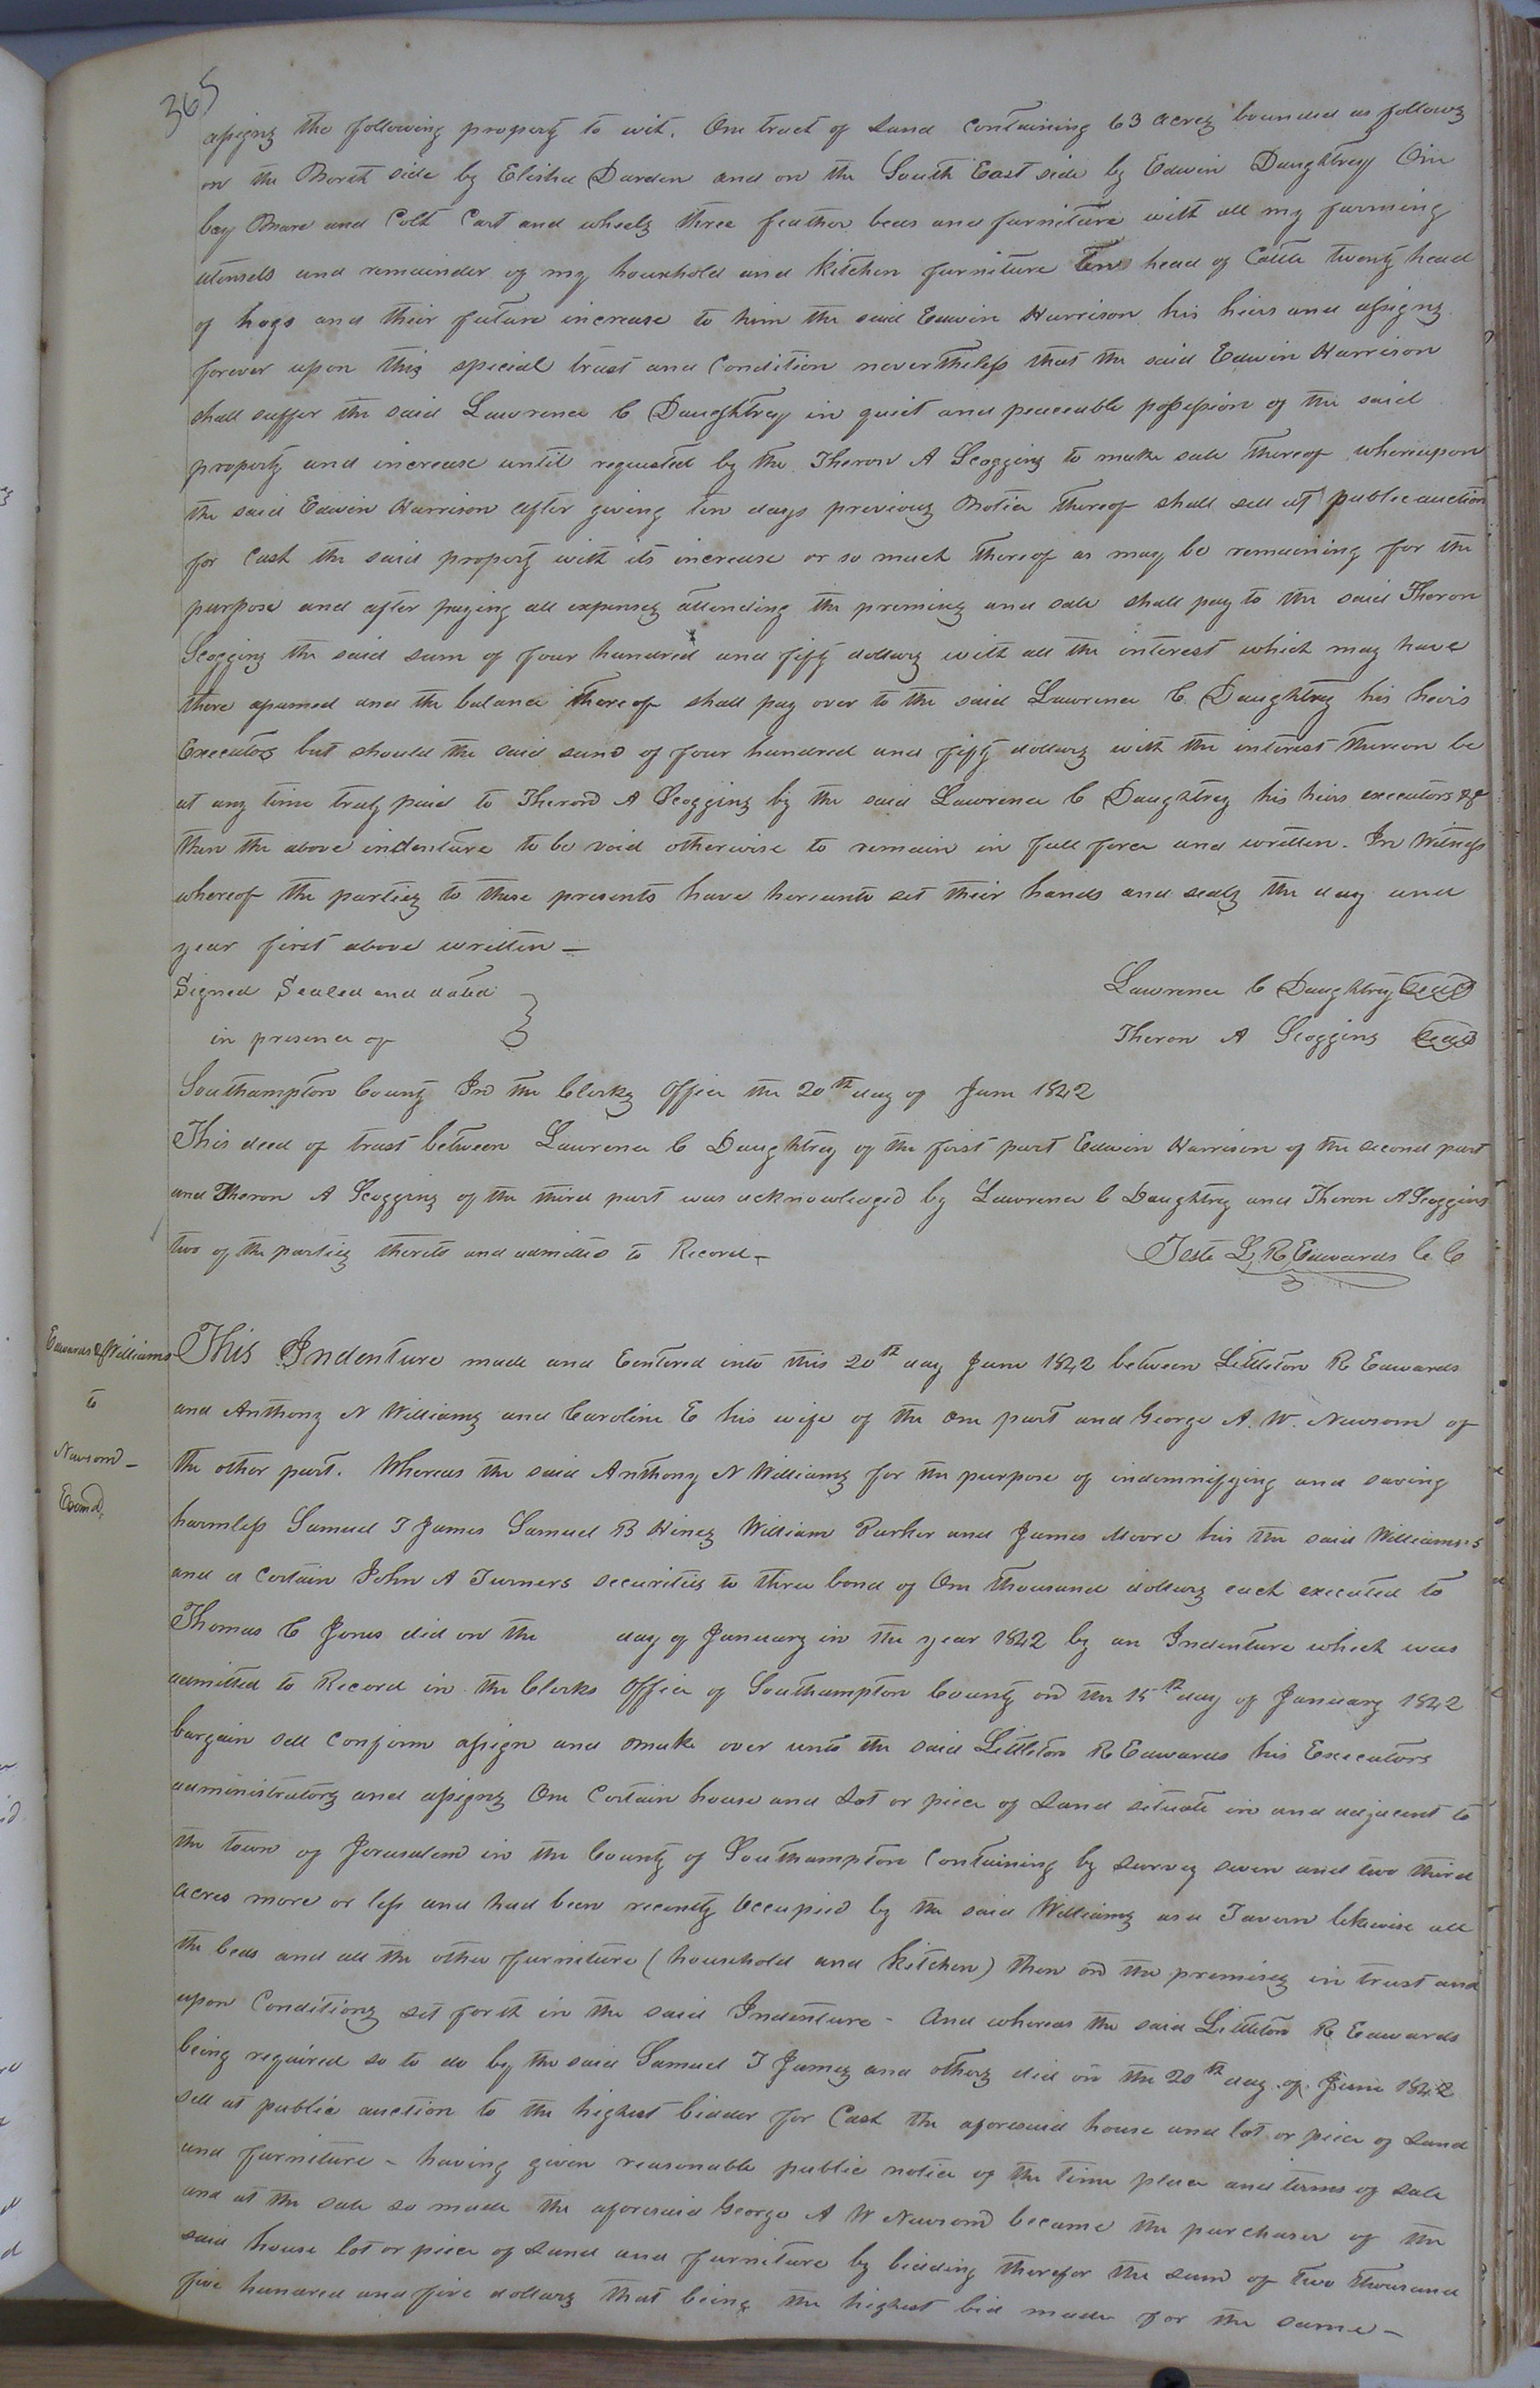 365
assigns the following property to wit. One tract of Land Containing 63 acres bounded as follows
on the North side by Elisha Darden and on the South East side by Edwin Daughtrey One
bay Mare and Colt Cart and wheels three feather beds and furniture with all my farming
utensels and remainder of my household and Kitchen furniture Ten head of Cattle twenty head
of hogs and their future increase to him the said Edwin Harrison his heirs and assigns
forever upon this special trust and Condition nevertheless that the said Edwin Harrison
shall suffer the said Lawrence C Daughtrey in quiet and peaceable possession of the said
property and increase until requested by the Theron A Scoggins to make sale thereof whereupon
the said Edwin Harrison after giving ten days previous Notice thereof shall sell at public auction
for Cash the said property with its increase or so much thereof as may be remaining for the
purpose and after paying all expenses attending the premises and sale shall pay to the said Theron
Scoggins the said sum of four hundred and fifty dollars with all the interest which may have
there and the balance thereof shall pay over to the said Lawrence C Daughtrey his heirs
Executors but should the said sum of four hundred and fifty dollars with the interest thereon be
at any time truly paid to Theron A Scoggins by the said Lawrence C Daughtrey his heirs executors &c
then the above indenture to be void otherwise to remain in full force and written. In Witness
whereof the parties to these presents have hereunto set their hands and seals the day and
year first above written —
Signed Sealed and dated } Lawrence C Daughtrey Seal
in presence of Theron A Scoggins Seal
Southampton County In the Clerks Office the 20th day of June 1842
This deed of trust between Lawrence C Daughtrey of the first part Edwin Harrison of the second part
and Theron A Scoggins of the third part was acknowledged by Lawrence C Daughtrey and Theron A Scoggins
two of the parties thereto and admitted to Record — Teste L R Edwards C C
Edwards & Williams
to
Newsom —
Examd,
This Indenture made and Eentered into this 20th day June 1842 between Littleton R Edwards
and Anthony N Williams and Caroline E his wife of the one part and George A. W. Newsom of
the other part. Whereas the said Anthony N Williams for the purpose of indemnifying and saving
harmless Samuel T James Samuel B Hines William Parker and James Moore his the said Williams's
and a Certain John A Turners securities to three bond of One thousand dollars each executed to
Thomas C Jones did on the day of January in the year 1842 by an Indenture which was
admitted to Record in the Clerks Office of Southampton County on the 15th day of January 1842
bargain sell Confirm assign and make over unto the said Littleton R Edwards his Executors
administrators and assigns One Certain house and Lot or piece of Land situate in and adjacent to
the town of Jerusalem in the County of Southampton Containing by survey seven and two third
acres more or less and had been recently occupied by the said Williams as a Tavern likewise all
the beds and all the other furniture (household and Kitchen) then on the premises in trust and
upon Conditions set forth in the said Indenture - And whereas the said Littleton R Edwards
being required so to do by the said Samuel T James and others did on the 20th day of June 1842
sell at public auction to the highest bidder for Cash the aforesaid house and lot or piece of Land
and furniture - having given reasonable public notice of the time place and terms of sale
and at the sale so made the aforesaid George A W Newsom became the purchaser of the
said house lot or piece of Land and furniture by bidding therefor the sum of two thousand
five hundred and five dollars that being the highest bid made for the same —